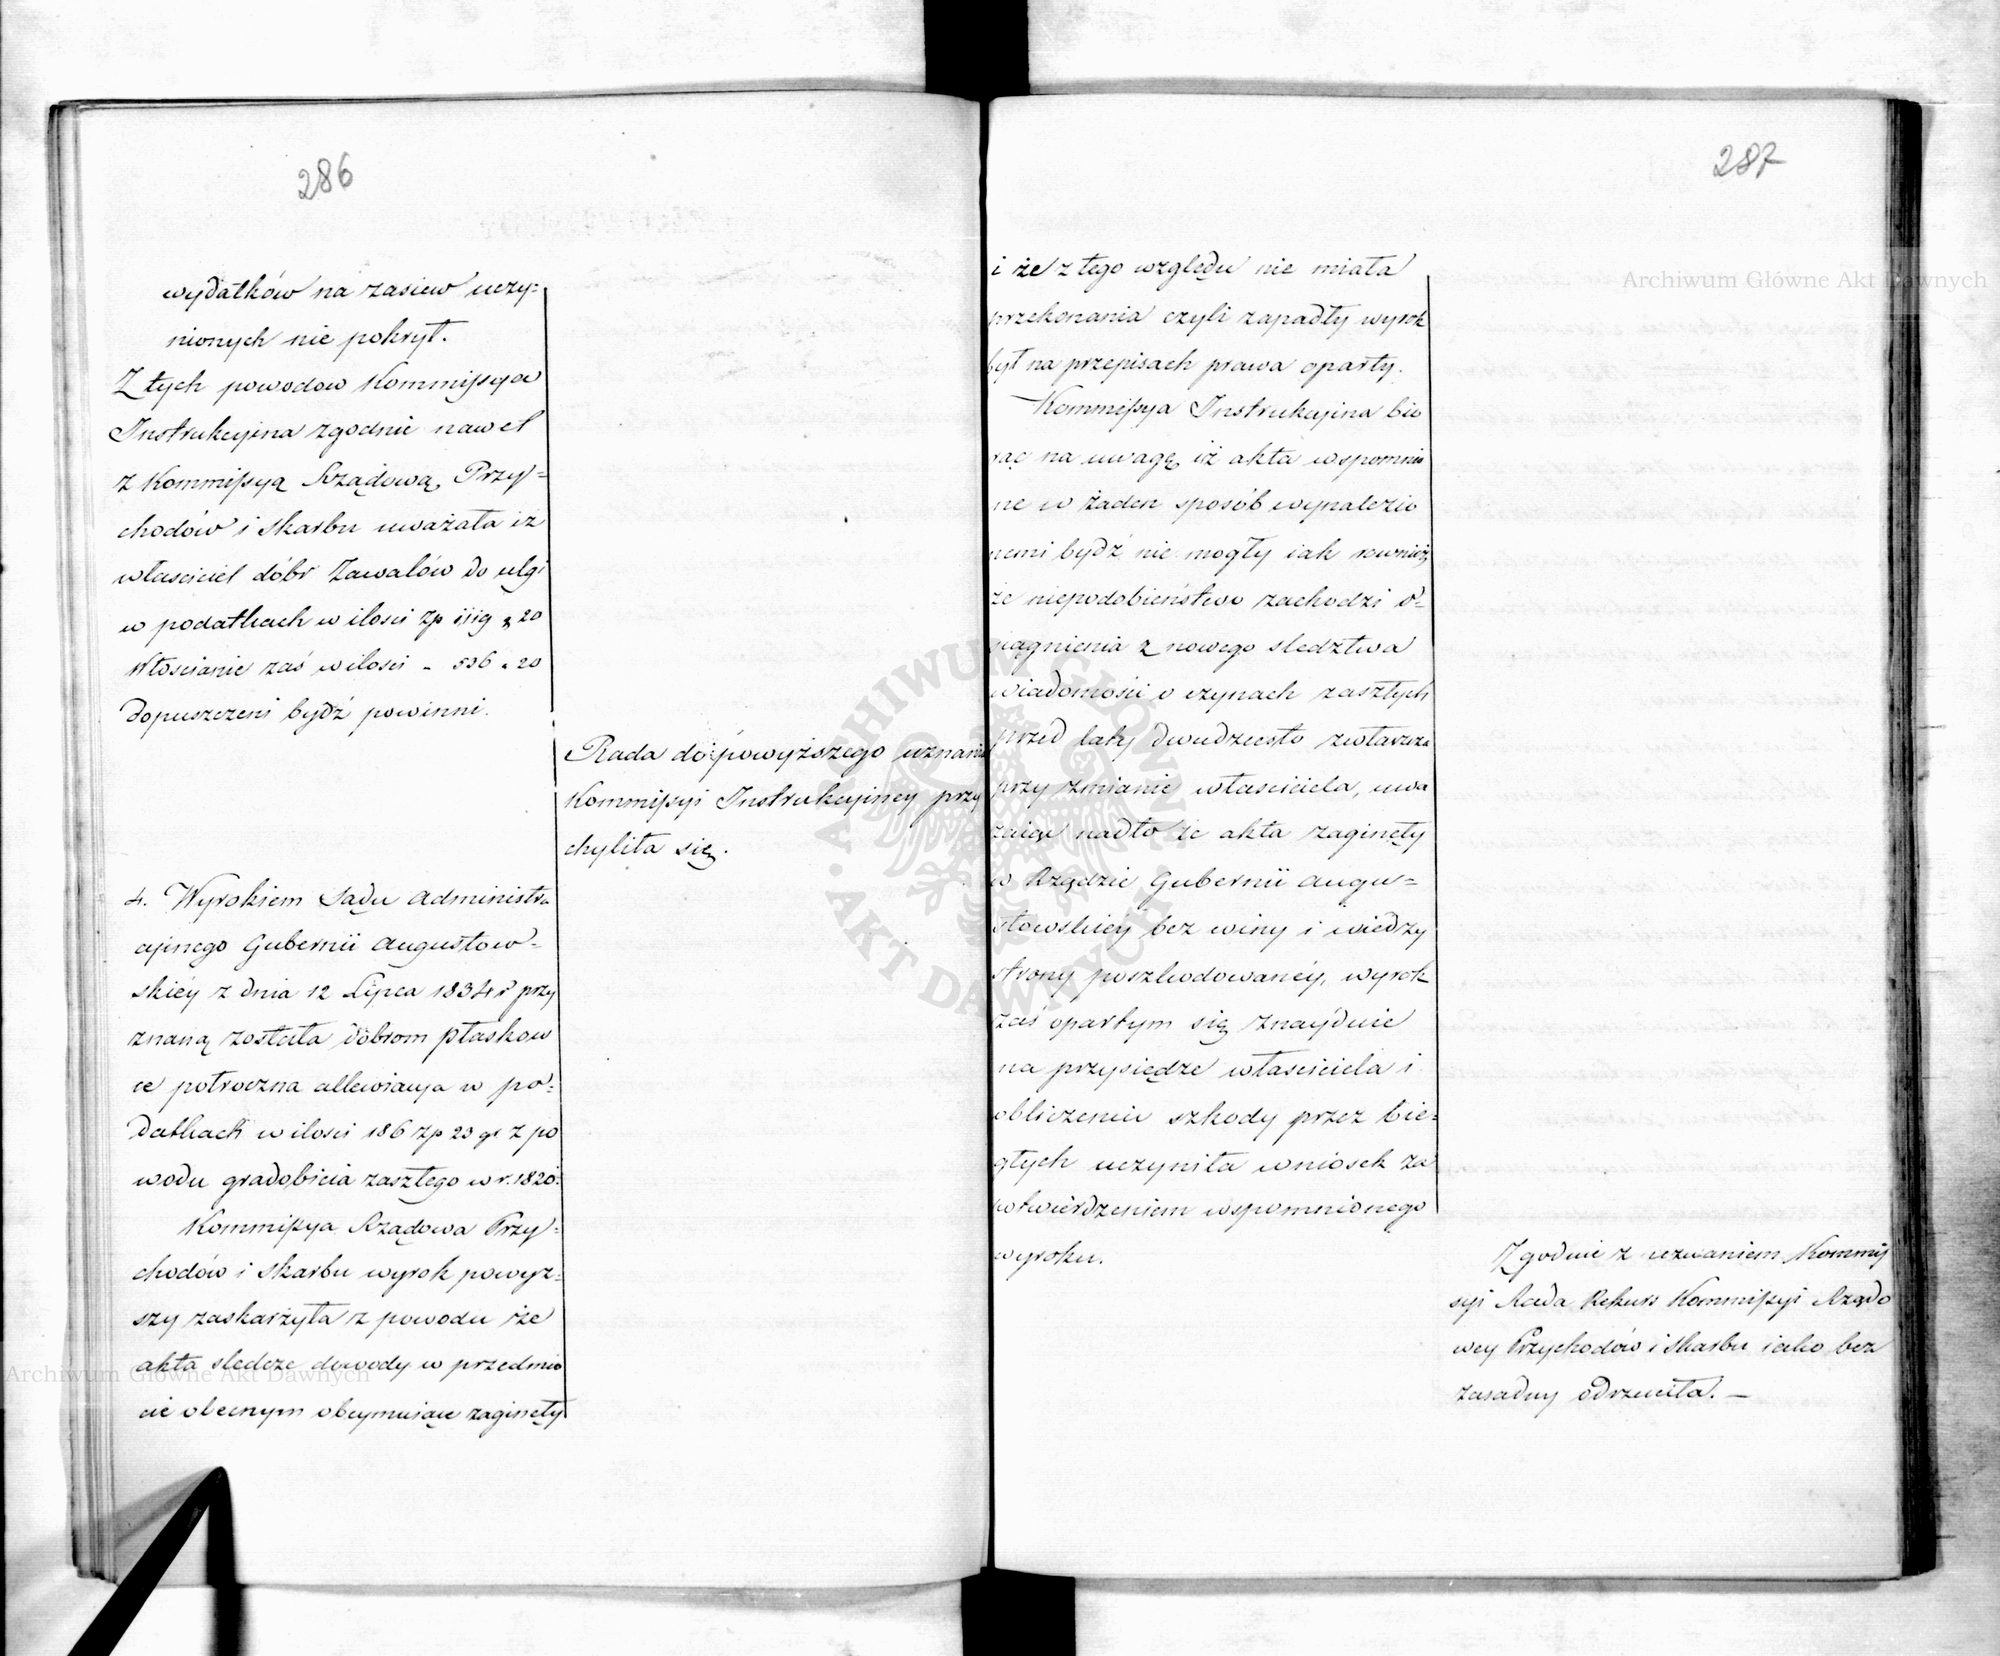 286
wydatków na zasiew uczy=
nionych nie pokrył.
Z tych powodow Kommissya
Instrukcyina zgodnie nawet
z Kommissyą Rządową Przy=
chodów i Skarbu uważała iż
właściciel dóbr Zawalów do ulgi
w podatkach w ilości Zp 20
Włościanie zaś w ilości - 506 " 20
dopuszczeni bydź powinni.
Rada do powyższego uznania
Kommissyi Instrukcyiney przy
chyliła się.
4. Wyrokiem Sądu Administra
cyinego Gubernii Augustow=
skiéy z dnia 12 Lipca 1834 r przy
znaną została dobrom Płaskow
ce półroczna allewiacya w po=
datkach w ilości 186 Zp 23 gr z po
wodu gradobicia zaszłego w r. 1820.
Kommissya Rządowa Przy=
chodów i Skarbu wyrok powyż=
szy zaskarżyła z powodu że
akta śledcze dowody w przedmio
cie obecnym obeymuiące zaginęły
287
i że z tego względu nie miała
przekonania czyli zapadły wyrok
był na przepisach prawa oparty.
Kommissya Instrukcyina bio
rąc na uwagę iż akta wspomnio
ne w żaden sposób wynalezio
nemi bydź nie mogły iak rownież
że niepodobieństwo zachodzi o=
siągnienia z nowego śledztwa
wiadomości o czynach zaszłych
przed laty dwudziestu zwłaszcza
przy zmianie właściciela, uwa
żaiąc nadto że akta zaginęły
w Rządzie Gubernii Augus=
towskiéy bez winy i wiedzy
strony poszkodowanéy, wyrok
zaś opartym się znayduie
na przysiędze właściciela i
obliczeniu szkody przez bie=
głych uczyniła wniosek za
potwierdzeniem wspomnionego
wyroku.
Zgodnie z uznaniem Kommis
syi Rada Rekurs Kommissyi Rządo
wey Przychodów i Skarbu iako bez
zasadny odrzuciła. —
Archiwum Główne Akt Dawnych
Archiwum Główne Akt Dawnych
ARCHIWUM GŁÓWNE • AKT DAWNYCH •